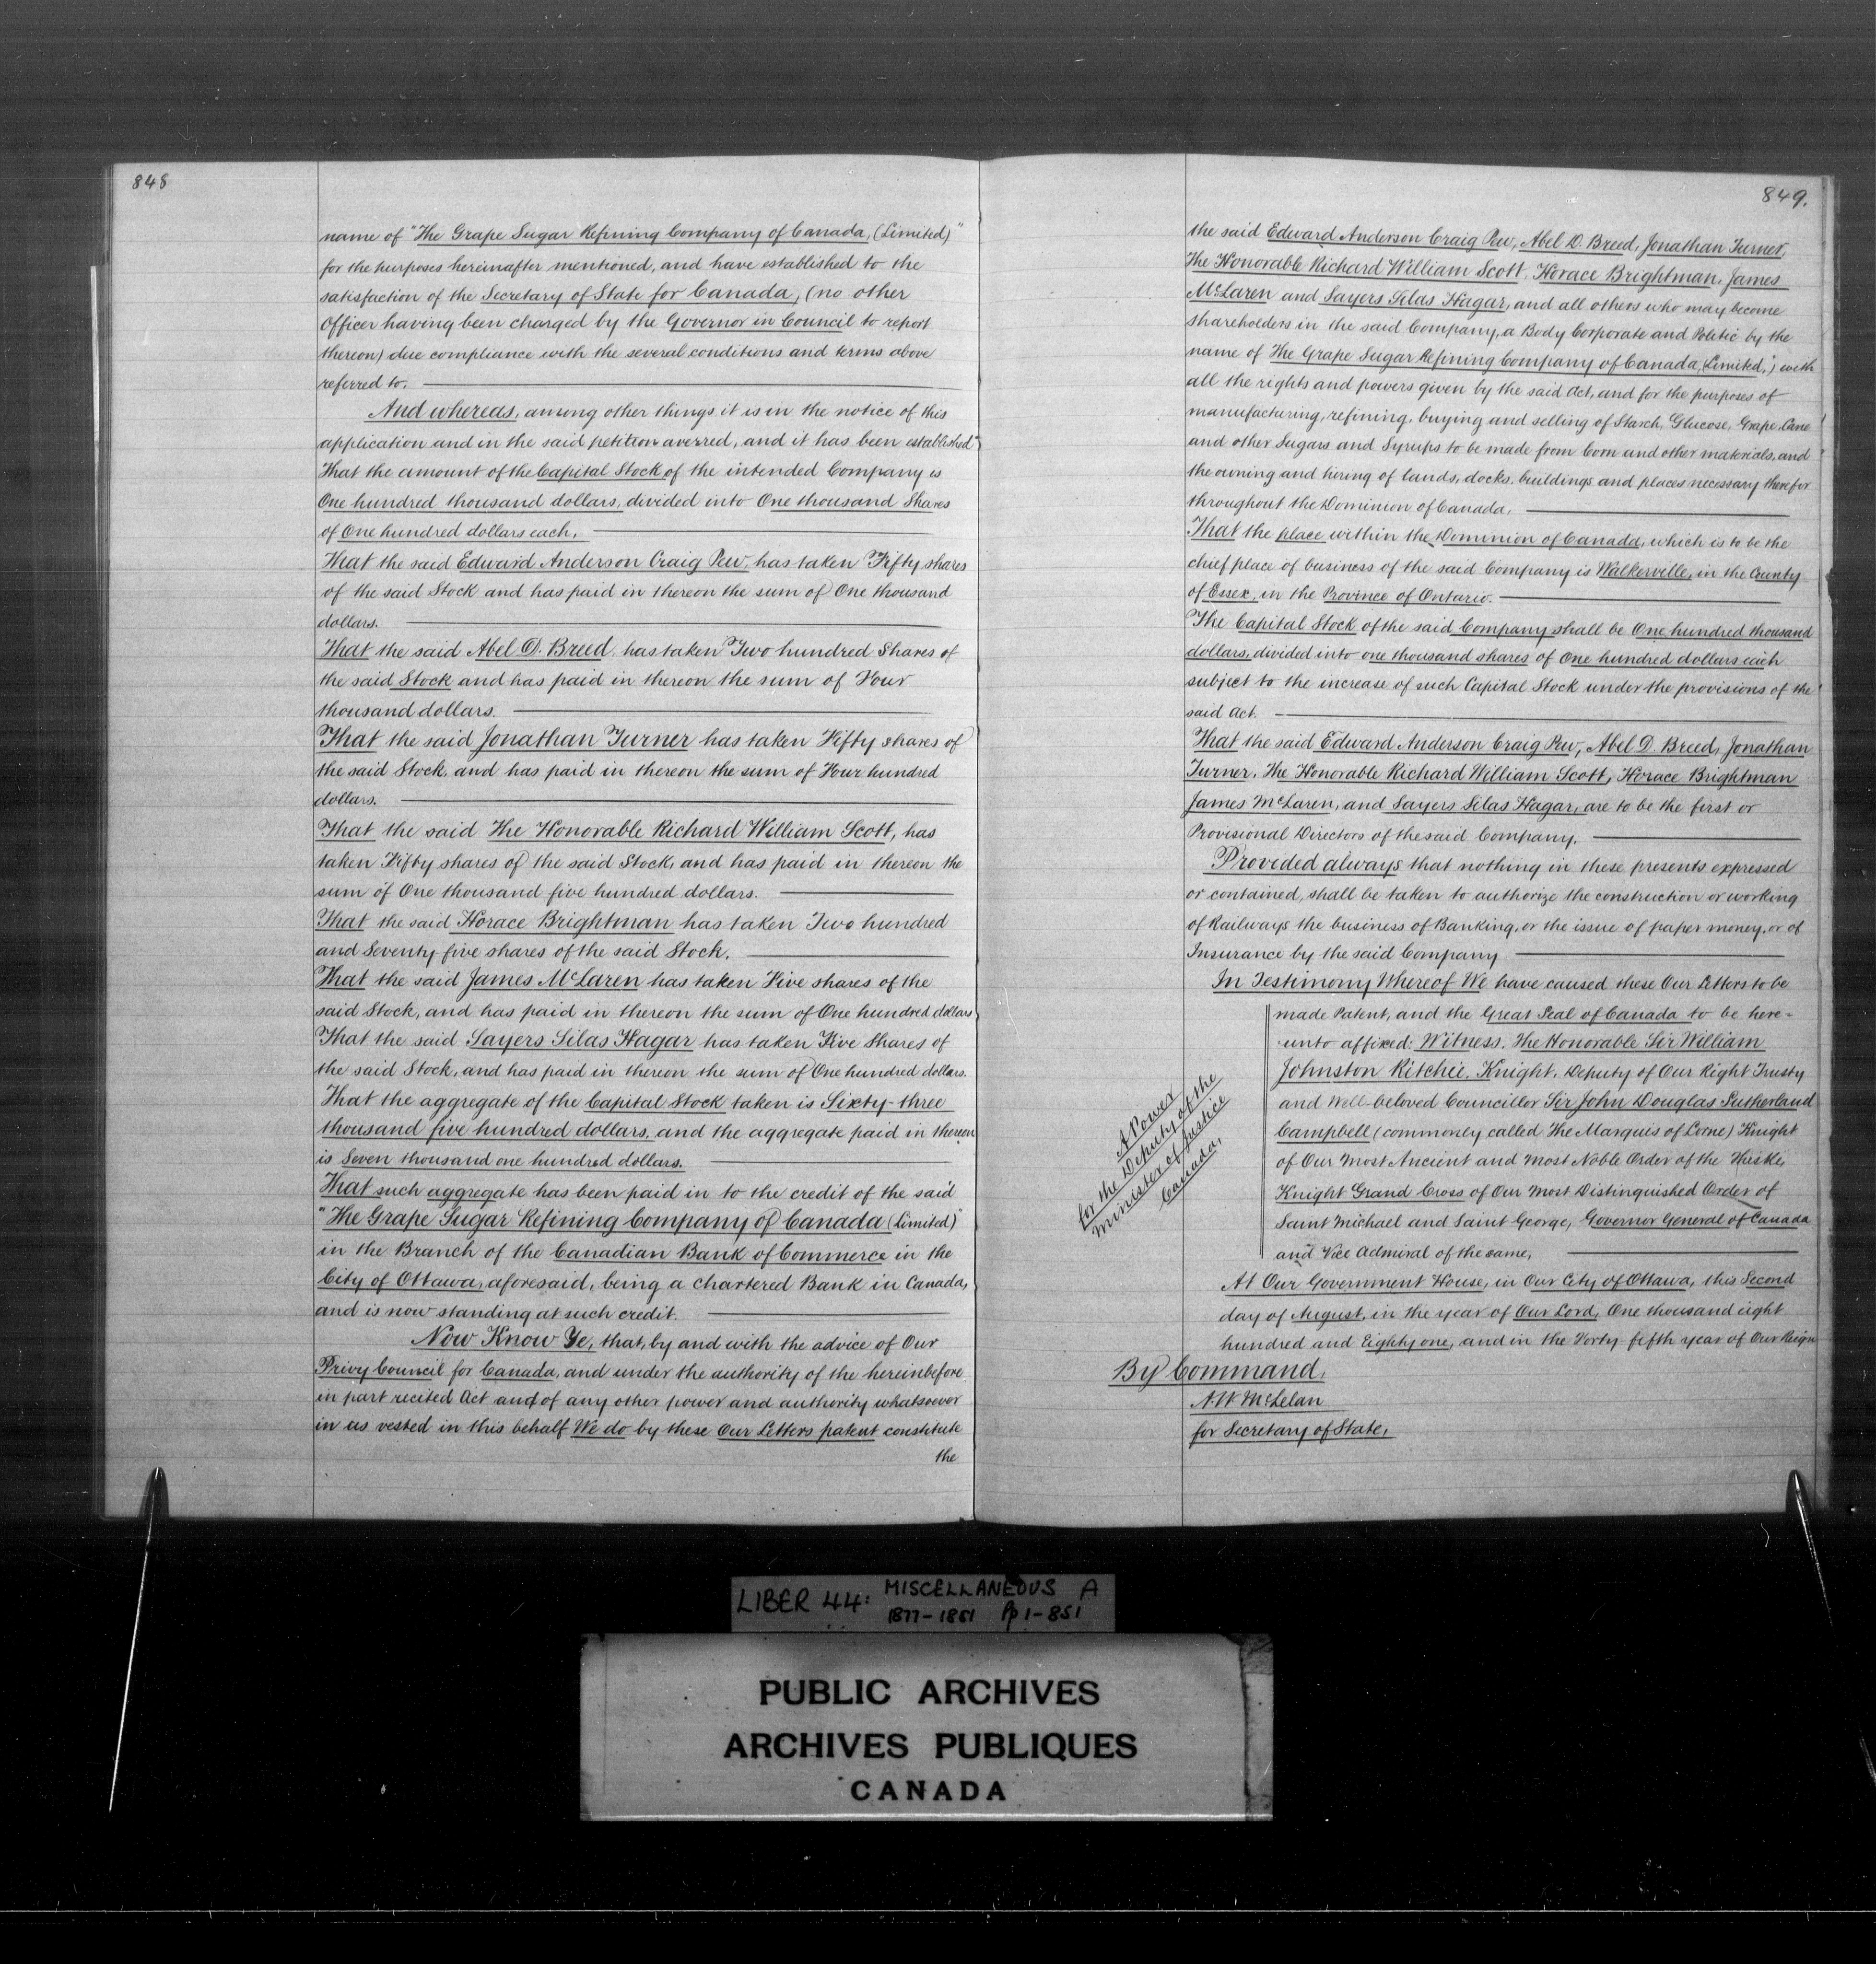 848
name of "The Grape Sugar Refining Company of Canada, (Limited)"
for the purposes hereinafter mentioned, and have established to the
satisfaction of the Secretary of State for Canada, (no other
Officer having been charged by the Governor in Council to report
thereon) due compliance with the several conditions and terms above
referred to.
And whereas, among other things it is in the notice of this
application and in the said petition averred, and it has been established
That the amount of the Capital Stock of the intended Company is
One hundred thousand dollars, divided into One thousand Shares
of One hundred dollars each.
That the said Edward Anderson Craig Pew, has taken Fifty shares
of the said Stock and has paid in thereon the sum of One thousand
dollars.
That the said Abel D. Breed has taken Two hundred Shares of
the said Stock and has paid in thereon the sum of Four
thousand dollars.
That the said Jonathan Turner has taken Fifty shares of
the said Stock, and has paid in thereon the sum of Four hundred
dollars.
That the said The Honorable Richard William Scott, has
taken Fifty shares of the said Stock, and has paid in thereon the
sum of One thousand five hundred dollars.
That the said Horace Brightman has taken Two hundred
and Seventy five shares of the said Stock.
That the said James McLaren has taken Five shares of the
said Stock, and has paid in thereon the sum of One hundred dollars
That the said Sayers Silas Hagar has taken Five Shares of
the said Stock, and has paid in thereon the sum of One hundred dollars.
That the aggregate of the Capital Stock taken is Sixty-three
thousand five hundred dollars, and the aggregate paid in thereon
is Seven thousand one hundred dollars.
That such aggregate has been paid in to the credit of the said
"The Grape Sugar Refining Company of Canada (Limited)"
in the Branch of the Canadian Bank of Commerce in the
City of Ottawa, aforesaid, being a chartered Bank in Canada,
and is now standing at such credit.
Now Know Ye, that, by and with the advice of Our
Privy Council for Canada, and under the authority of the hereinbefore
in part recited Act and of any other power and authority whatsoever
in us vested in this behalf We do by these Our Letters patent constitute
the
849.
the said Edward Anderson Craig Pew, Abel D. Breed, Jonathan Turner,
The Honorable Richard William Scott, Horace Brightman, James
McLaren and Sayers Silas Hagar, and all others who may become
shareholders in the said Company, a Body Corporate and Politic by the
name of The Grape Sugar Refining Company of Canada, (Limited,") with
all the rights and powers given by the said Act, and for the purposes of
manufacturing, refining, buying and selling of Starch, Glucose, Grape, Cane
and other Sugars and Syrups to be made from Corn and other materials, and
the owning and hiring of lands, docks, buildings and places necessary therefor
throughout the Dominion of Canada.
That the place within the Dominion of Canada, which is to be the
chief place of business of the said Company is Walkerville, in the County
of Essex, in the Province of Ontario.
The Capital Stock of the said Company shall be One hundred thousand
dollars, divided into one thousand shares of One hundred dollars each
subject to the increase of such Capital Stock under the provisions of the
said Act.
That the said Edward Anderson Craig Pew, Abel D. Breed, Jonathan
Turner, The Honorable Richard William Scott, Horace Brightman
James McLaren, and Sayers Silas Hagar, are to be the first or
Provisional Directors of the said Company.
Provided always that nothing in these presents expressed
or contained, shall be taken to authorize the construction or working
of Railways the business of Banking, or the issue of paper money, or of
Insurance by the said Company
In Testimony Whereof We have caused these Our Letters to be
made Patent, and the Great Seal of Canada to be here-
unto affixed: Witness, The Honorable Sir William
Johnston Ritchie, Knight, Deputy of Our Right Trusty
and Well-beloved Councillor Sir John Douglas Sutherland
Campbell (commonly called The Marquis of Lorne) Knight
of Our Most Ancient and Most Noble Order of the Thistle,
Knight Grand Cross of Our Most Distinguished Order of
Saint Michael and Saint George, Governor General of Canada
and Vice Admiral of the same,
At Our Government House, in Our City of Ottawa, this Second
day of August, in the year of Our Lord, One thousand eight
hundred and Eighty one, and in the Forty fifth year of Our Reign
A Power
for the Deputy of the
Minister of Justice
Canada,
By Command,
A.W. McLelan
for Secretary of State,
LIBER 44: MISCELLANEOUS A
1877-1881 Pp 1-851
PUBLIC ARCHIVES
ARCHIVES PUBLIQUES
CANADA